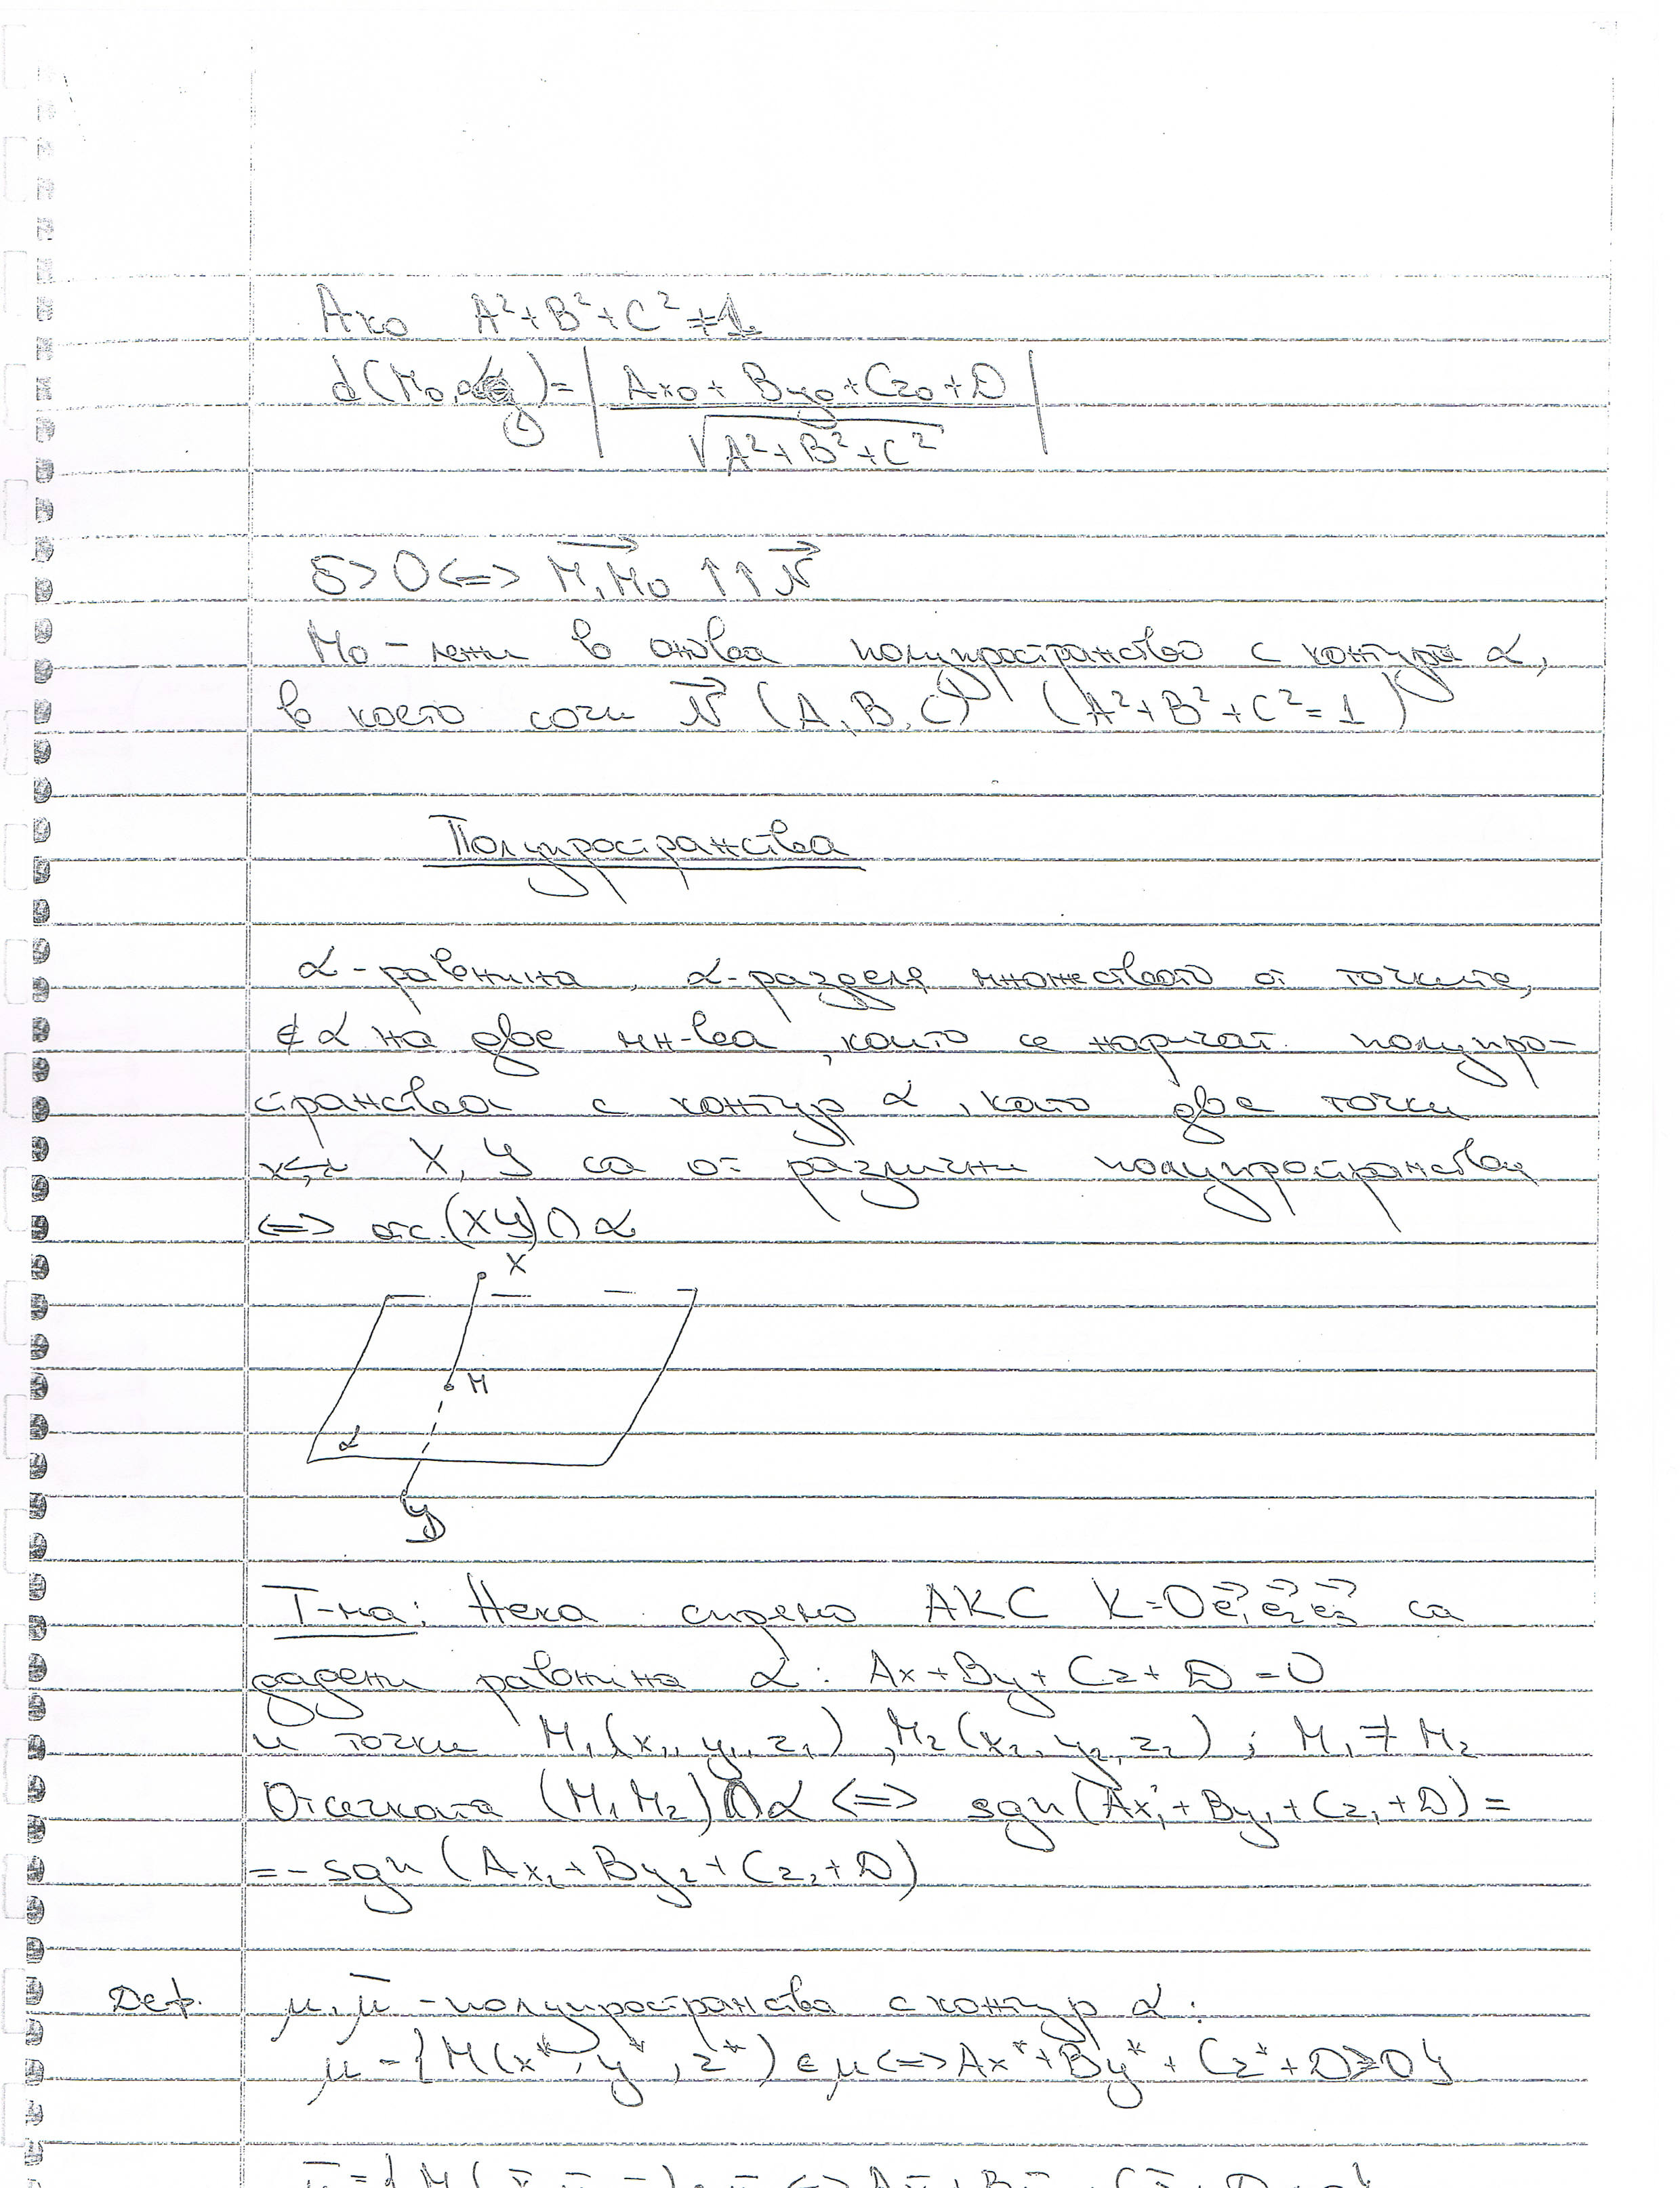 Ако A²+B²+C²≠1
d(M₀, α) = | Ax₀ + By₀ + Cz₀ + D |
√A²+B²+C²
δ>0 <=> M₁M₀ ↑↑ N
M₀ - лежи в онова полупространство с контур α,
в което сочи N (A, B, C) (A²+B²+C²=1)
Полупространства
α - равнина, α - разделя множеството от точките,
∉ α на две мн-ва, които се наричат полупро-
странства с контур α, като две точки
X, Y са от различни полупространства
<=> отс.(XY) ∩ α
X
M
α
Y
Т-ма: Нека спрямо АКС K=Oe₁e₂e₃ са
дадени равнина α: Ax+By+Cz+D=0
и точки M₁(x₁, y₁, z₁), M₂(x₂, y₂, z₂); M₁ ≠ M₂
Отсечката (M₁M₂) ∩ α <=> sgn(Ax₁+By₁+Cz₁+D) =
= - sgn (Ax₂+By₂+Cz₂+D)
Деф. μ, μ̄ - полупространства с контур α:
μ = {M(x*, y*, z*) ∈ μ <=> Ax*+By*+Cz*+D>0}